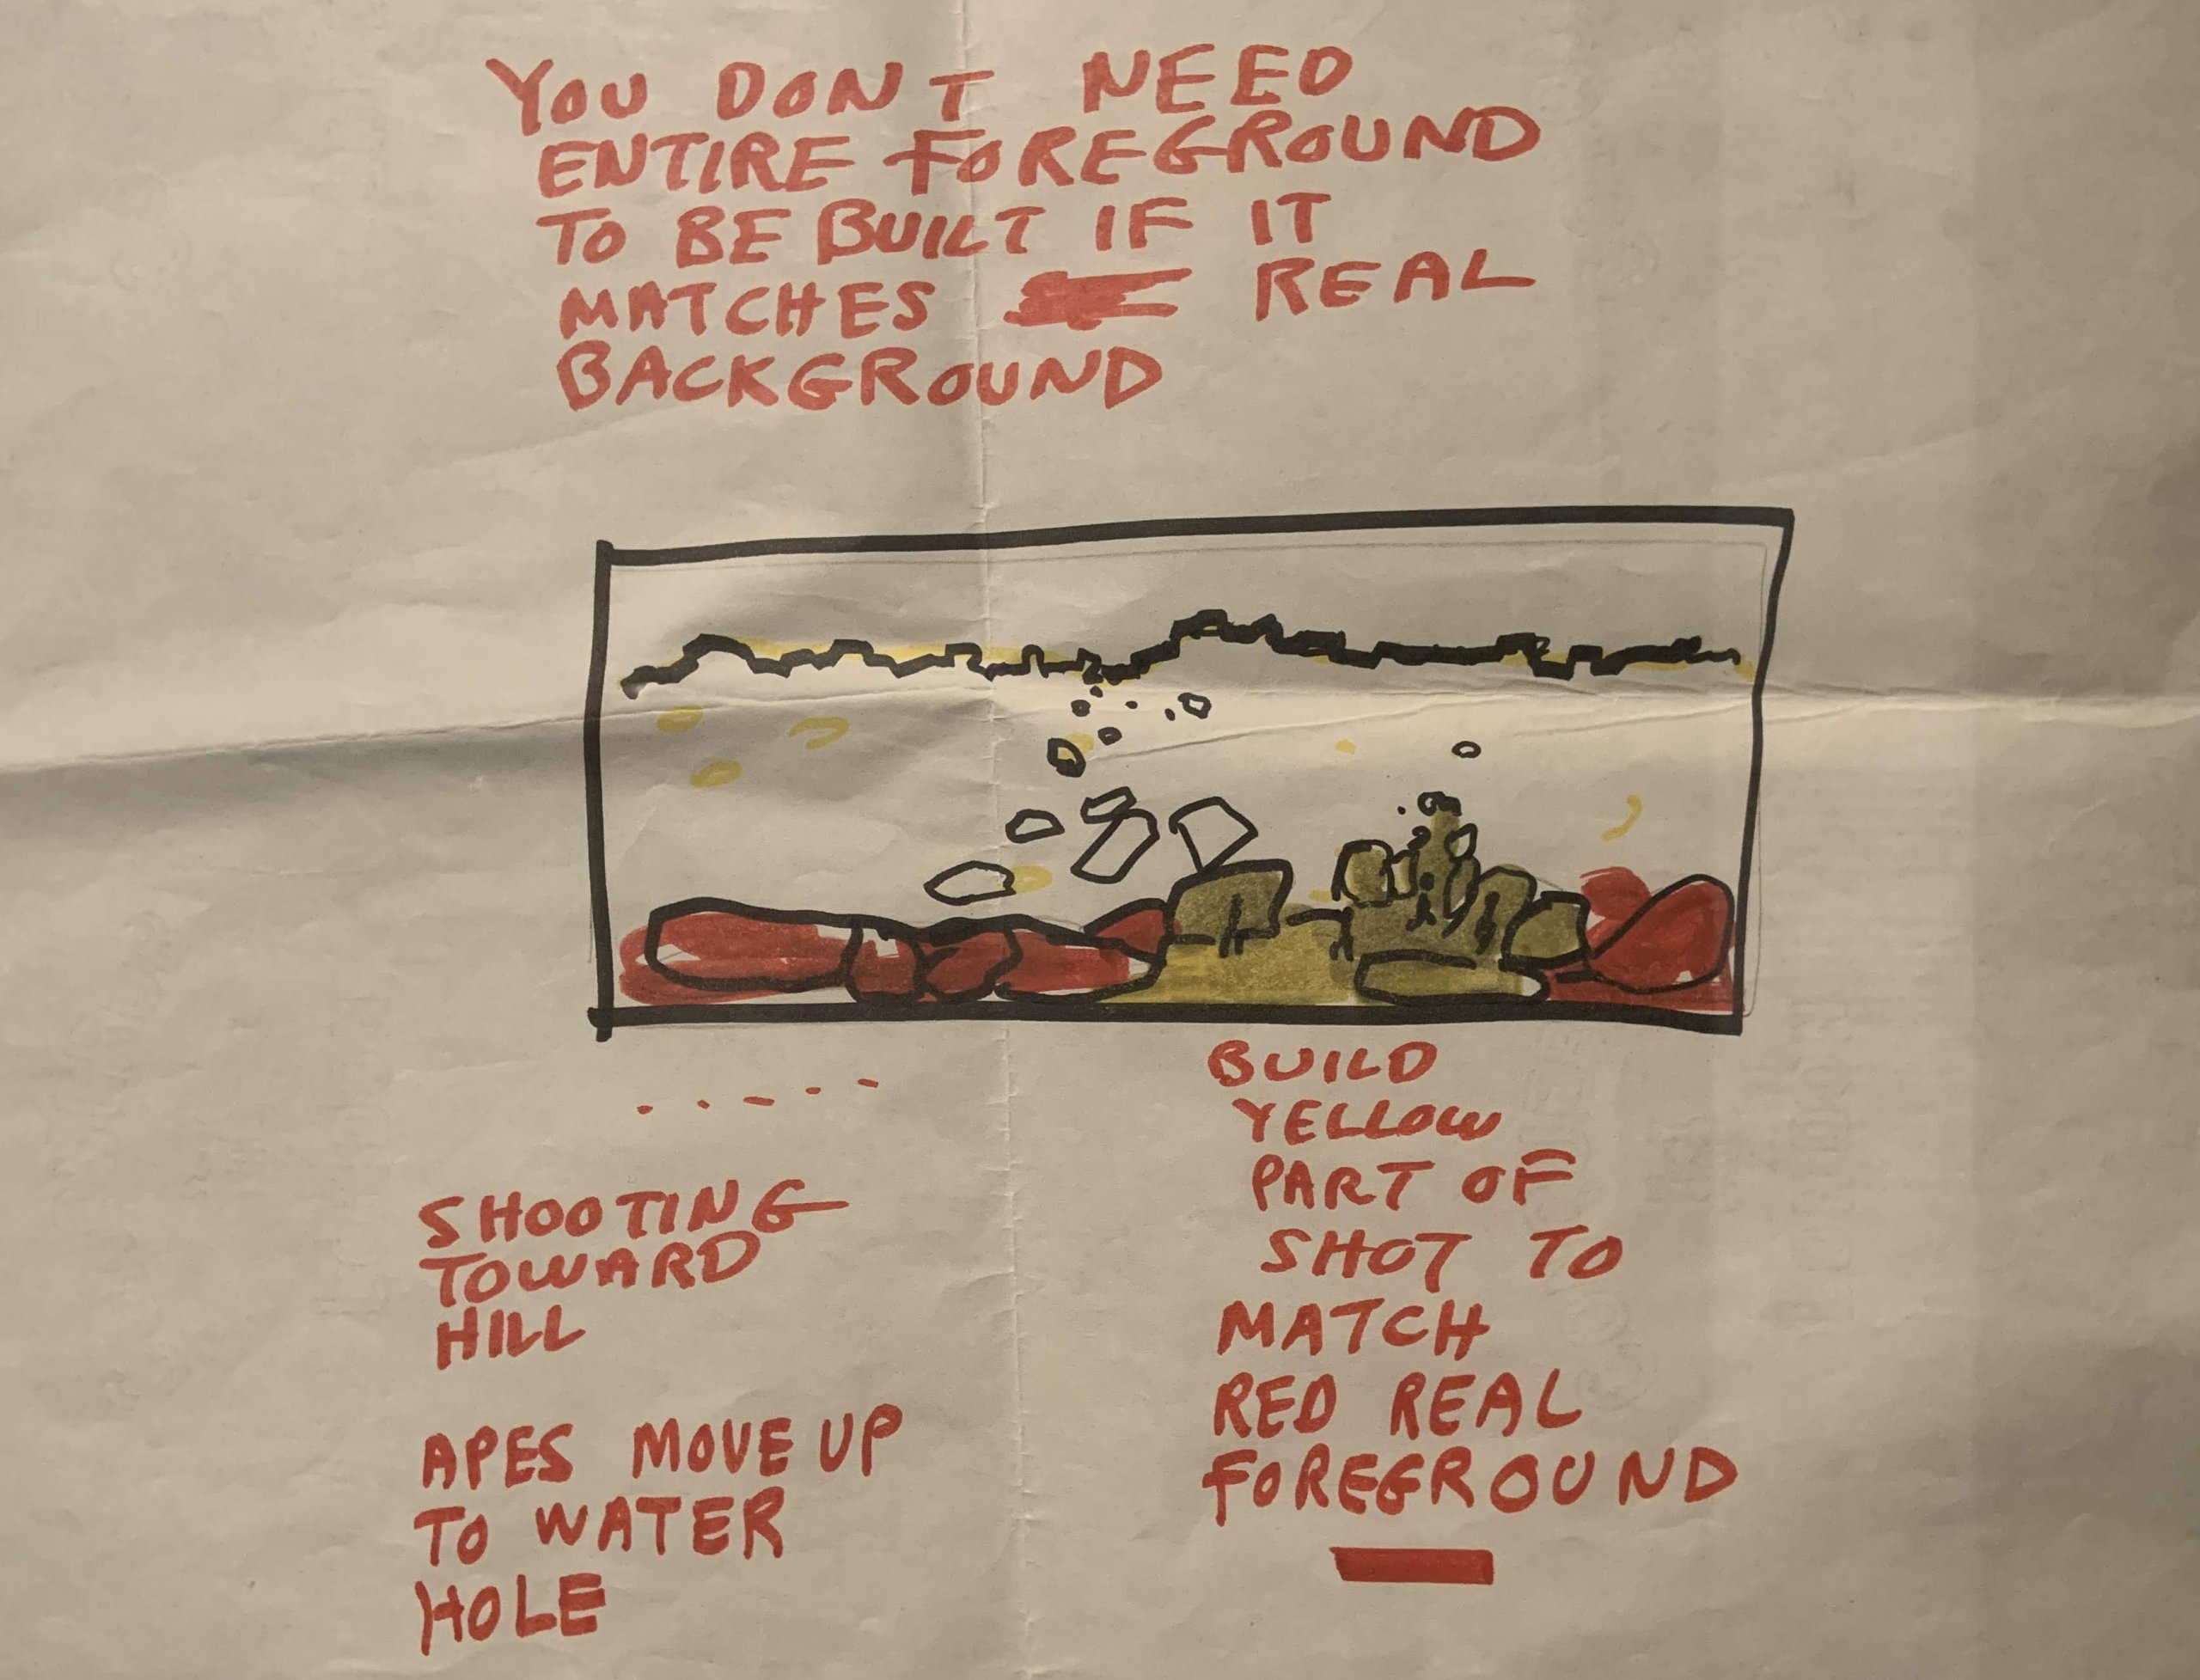 YOU DON T NEED
ENTIRE FOREGROUND
TO BE BUILT IF IT
MATCHES REAL
BACKGROUND
SHOOTING
TOWARD
HILL
APES MOVE UP
TO WATER
HOLE
BUILD
YELLOW
PART OF
SHOT TO
MATCH
RED REAL
FOREGROUND